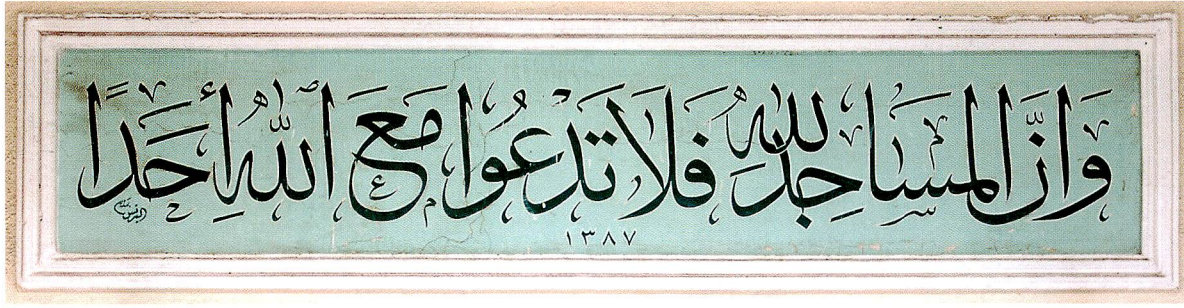 وَاَنَّ المَسَاجِدَ لِلّٰهِ فَلَا تَدْعُوا مَعَ اللّٰهِ أَحَدًا
١٣٨٧